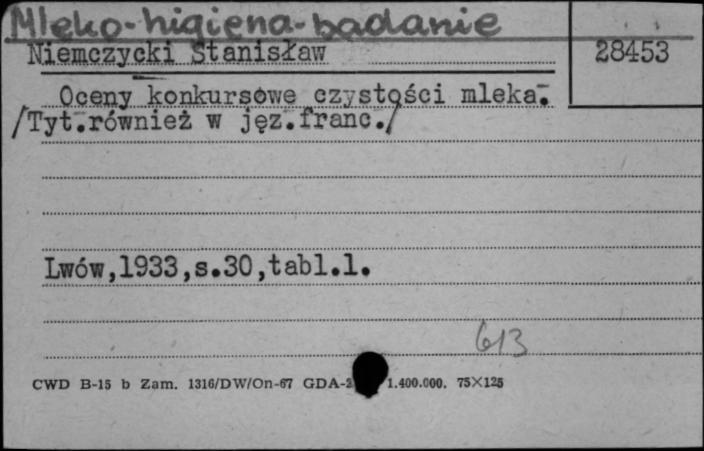 Mleko-higiena-badanie
Niemczycki Stanisław
28453
Oceny konkursowe czystości mleka.
/Tyt.również w jęz.franc./
Lwów,1933,s.30,tabl.1.
613
CWD B-15 b Zam. 1316/DW/On-67 GDA-2 1.400.000. 75×125